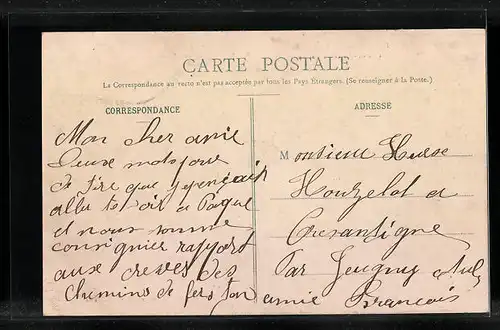 CARTE POSTALE
La Correspondance au recto n'est pas acceptée par tous les Pays Étrangers. (Se renseigner à la Poste.)
CORRESPONDANCE
Mon cher amie
Deux mots pour
te dire que je pencais
allu te voir a Paque
et nous somme
consignier rapport
aux creves des
chemins de fers ton
amie Francois
ADRESSE
Monsieur
Houzelot a
Cresantigne
Par Jeugny Aube